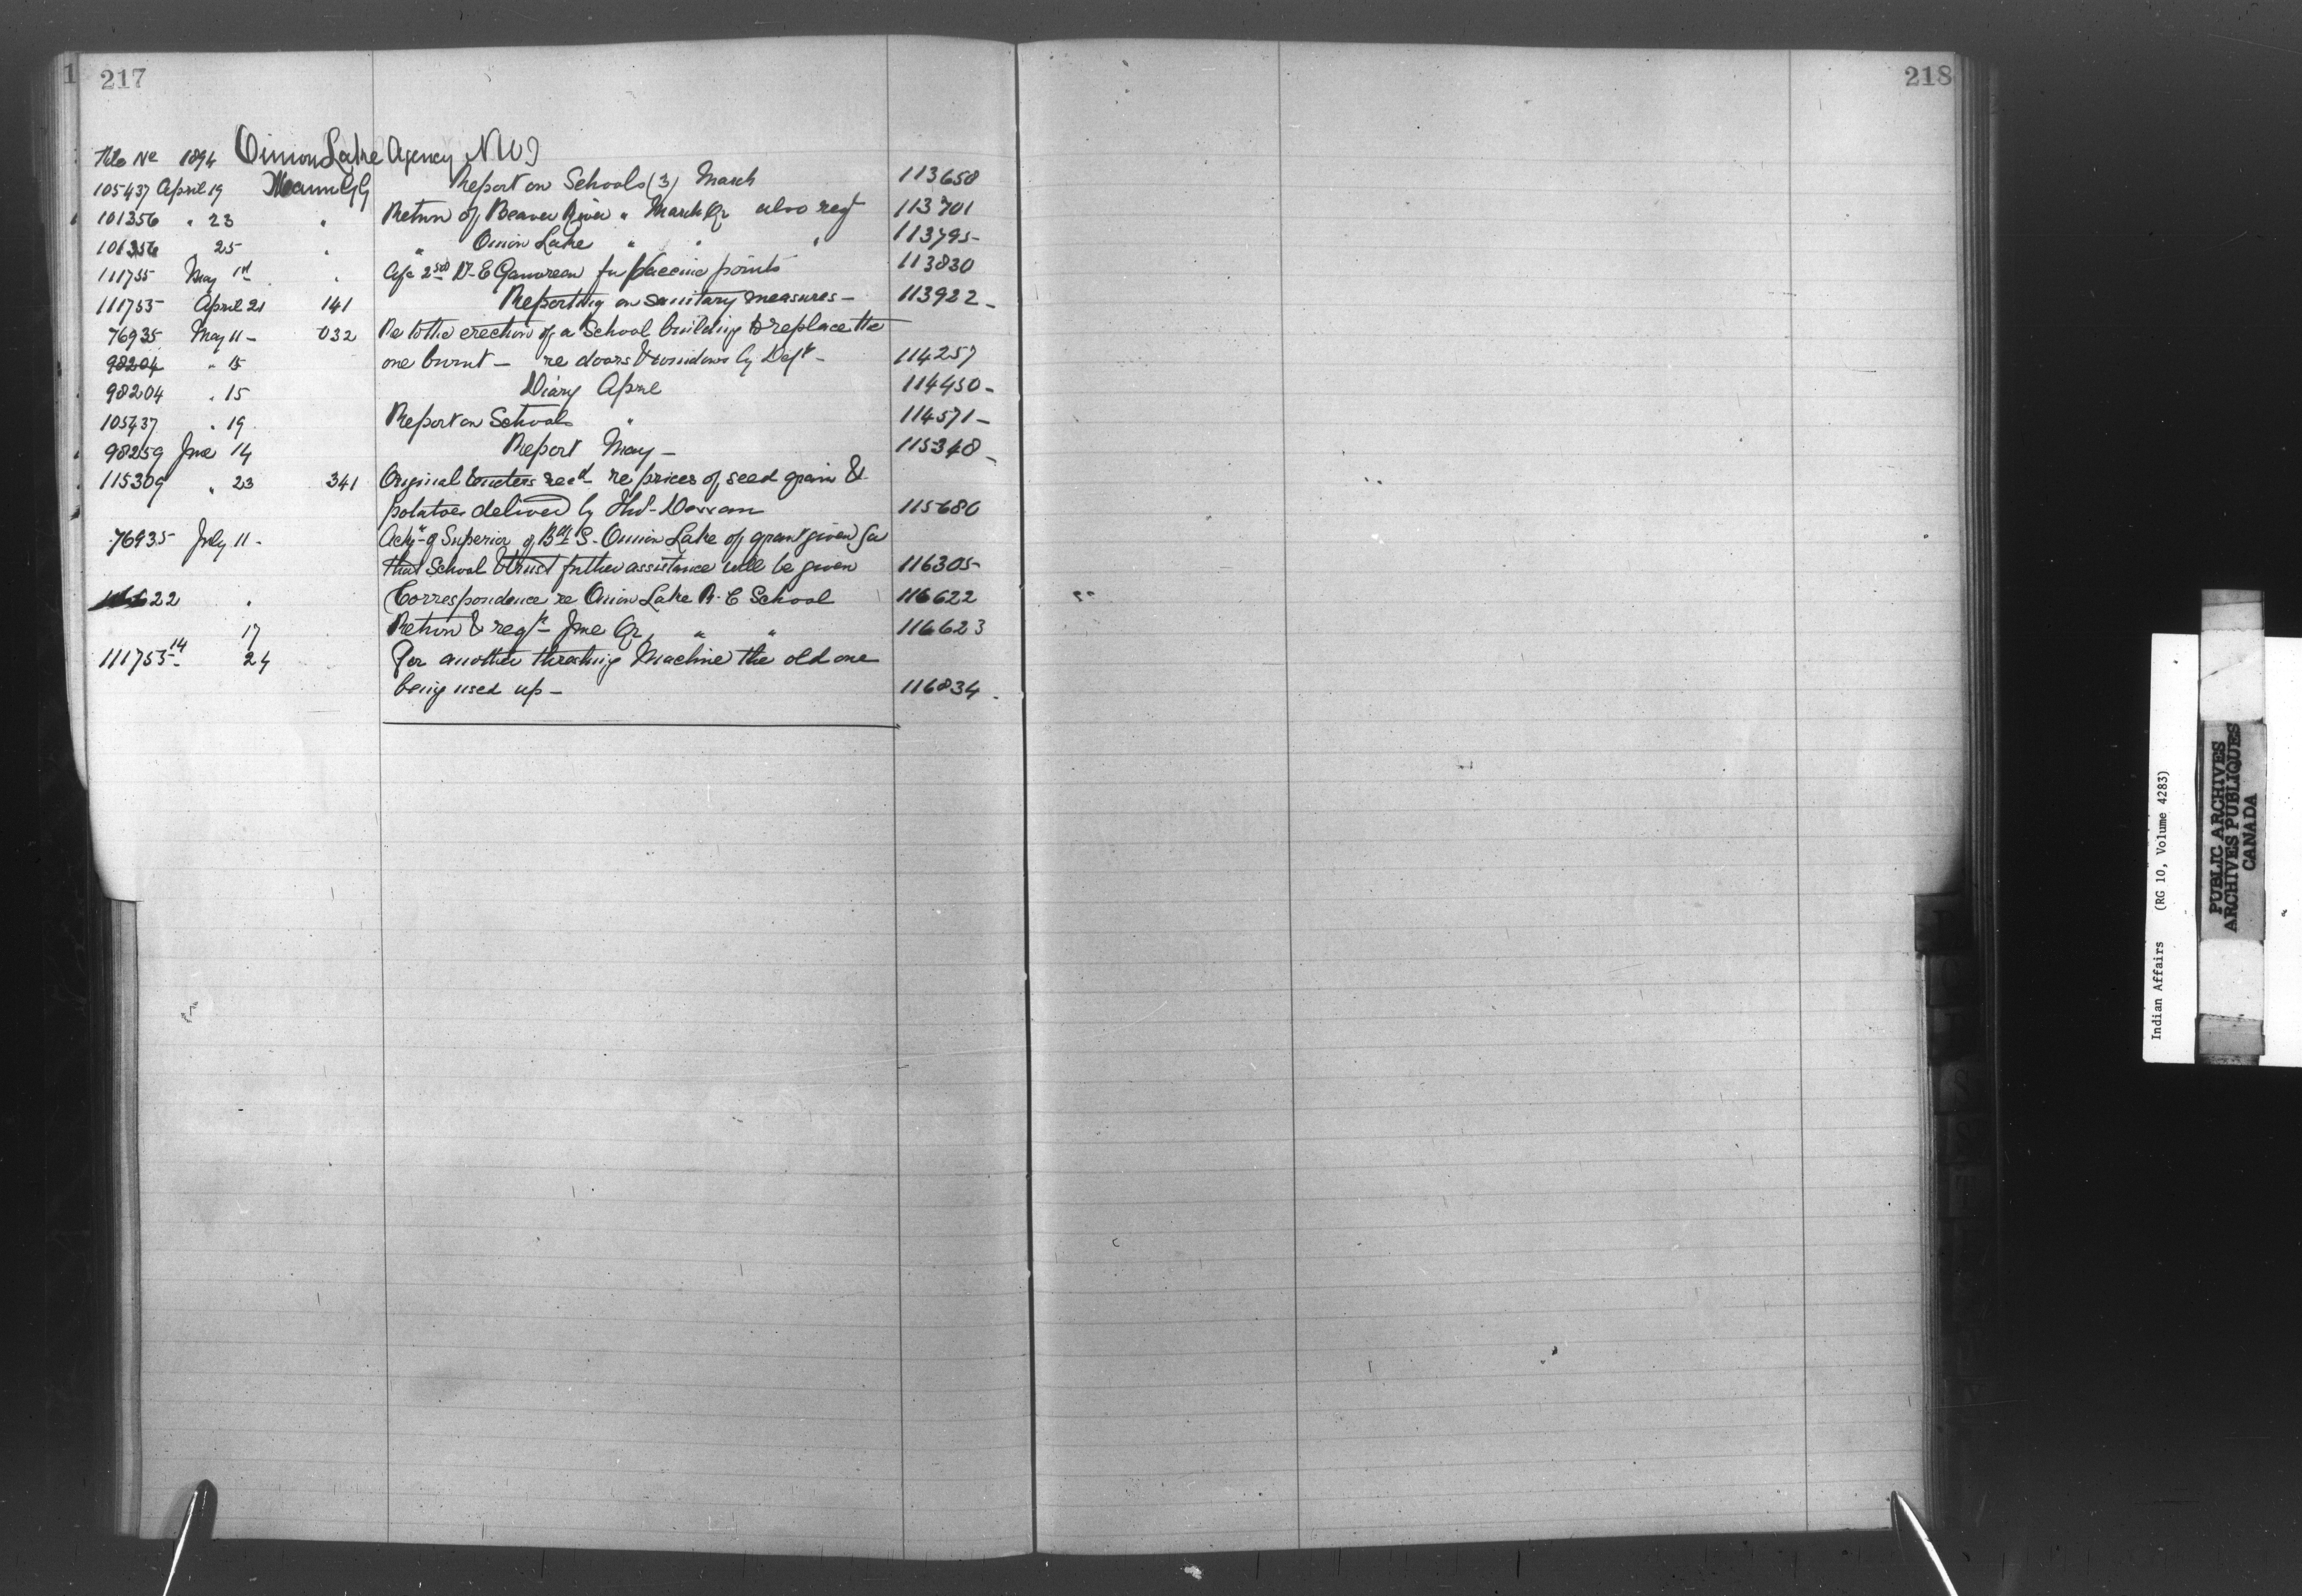 217
218
File No 1894 Onion Lake Agency NWT
105437 April 19 Mann GG Report on Schools (3) March 113658
101356 " 23 " Return of Beaver River " March Qr also reqt 113701
101356 25 " " Onion Lake " " " 113795
111755 May 1st " 2nd Dr E Gauvreau for Vaccine points 113830
111755 April 21 141 Reporting on sanitary measures - 113922
76935 May 11 - 032 Re to the erection of a School building to replace the
98204 " 15 one burnt - re doors & windows by Dept - 114257
98204 " 15 Diary April 114450
105437 " 19 Report on Schools " 114571
98259 June 14 Report May - 115348
115309 " 23 341 Original recd re prices of seed grain &
potatoes delivered by 115680
76935 July 11 - Ackg of Superior of Bdg S. Onion Lake of grant given for
that School & trust further assistance will be given 116305
22 " Correspondence re Onion Lake R.C School 116622
17 Return & reqt June Qr " " 116623
111753-14 24 For another threshing Machine the old one
being used up - 116834
Indian Affairs (RG 10, Volume 4283)
PUBLIC ARCHIVES
ARCHIVES PUBLIQUES
CANADA